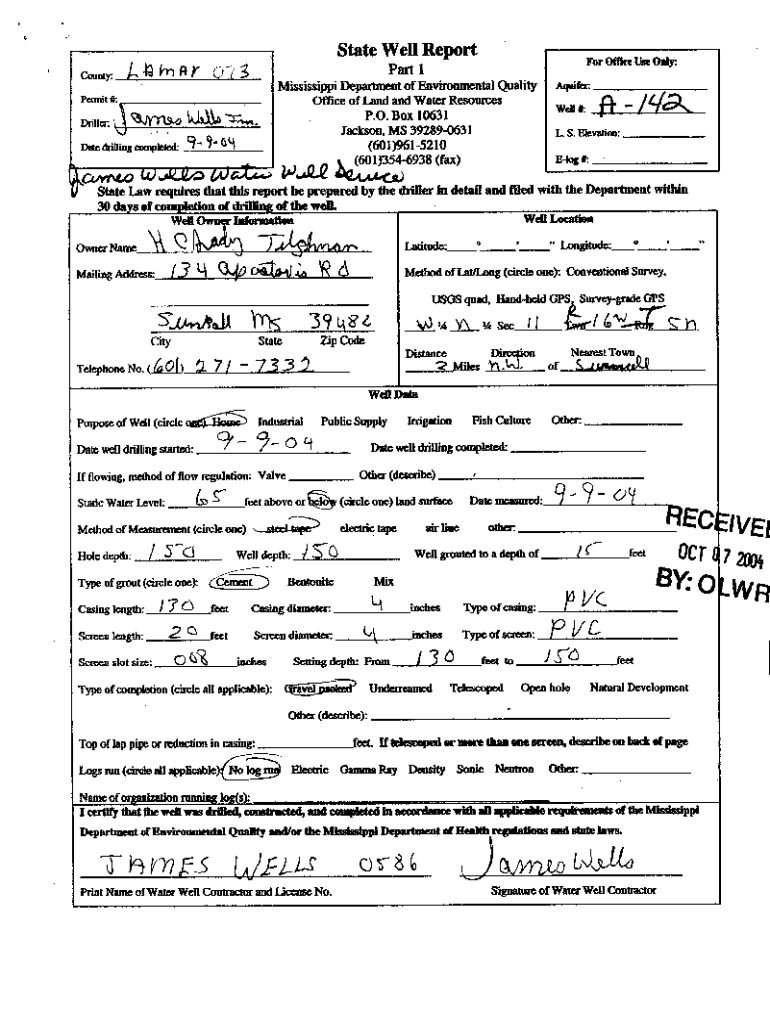 State Well Report
Part 1
Mississippi Department of Environmental Quality
Office of Land and Water Resources
P.O. Box 10631
Jackson, MS 39289-0631
(601)961-5210
(601)354-6938 (fax)
County: LAMAR 073
Permit #:
Driller: James Wells
Date drilling completed: 9-9-04
For Office Use Only:
Aquifer:
Well #: A-142
L. S. Elevation:
E-log #:
James Wells Water Well Service
State Law requires that this report be prepared by the driller in detail and filed with the Department within
30 days of completion of drilling of the well.
Well Owner Information
Owner Name Tilghman
Mailing Address: 134 Rd
Ms 39482
City State Zip Code
Telephone No. (601) 271-7332
Well Location
Latitude: ° ' " Longitude: ° ' "
Method of Lat/Long (circle one): Conventional Survey,
USGS quad, Hand-held GPS, Survey-grade GPS
¼ N ¼ Sec 11 R 16W T 5N
Distance Direction Nearest Town
Miles N.W. of
Well Data
Purpose of Well (circle one) Home Industrial Public Supply Irrigation Fish Culture Other:
Date well drilling started: 9-9-04 Date well drilling completed:
If flowing, method of flow regulation: Valve Other (describe)
Static Water Level: 65 feet above or below (circle one) land surface Date measured: 9-9-04
Method of Measurement (circle one) steel tape electric tape air line other:
Hole depth: 150 Well depth: 150 Well grouted to a depth of 15 feet
Type of grout (circle one): Cement Bentonite Mix
Casing length: 130 feet Casing diameter: 4 inches Type of casing: PVC
Screen length: 20 feet Screen diameter: 4 inches Type of screen: PVC
Screen slot size: 008 inches Setting depth: From 130 feet to 150 feet
Type of completion (circle all applicable): Gravel packed Underreamed Telescoped Open hole Natural Development
Other (describe):
Top of lap pipe or reduction in casing: feet. If telescoped or more than one screen, describe on back of page
Logs run (circle all applicable): No log run Electric Gamma Ray Density Sonic Neutron Other:
Name of organization running log(s):
I certify that the well was drilled, constructed, and completed in accordance with all applicable requirements of the Mississippi
Department of Environmental Quality and/or the Mississippi Department of Health regulations and state laws.
JAMES WELLS 0586 James Wells
Print Name of Water Well Contractor and License No. Signature of Water Well Contractor
RECEIVE
OCT 07 2004
BY: OLWR